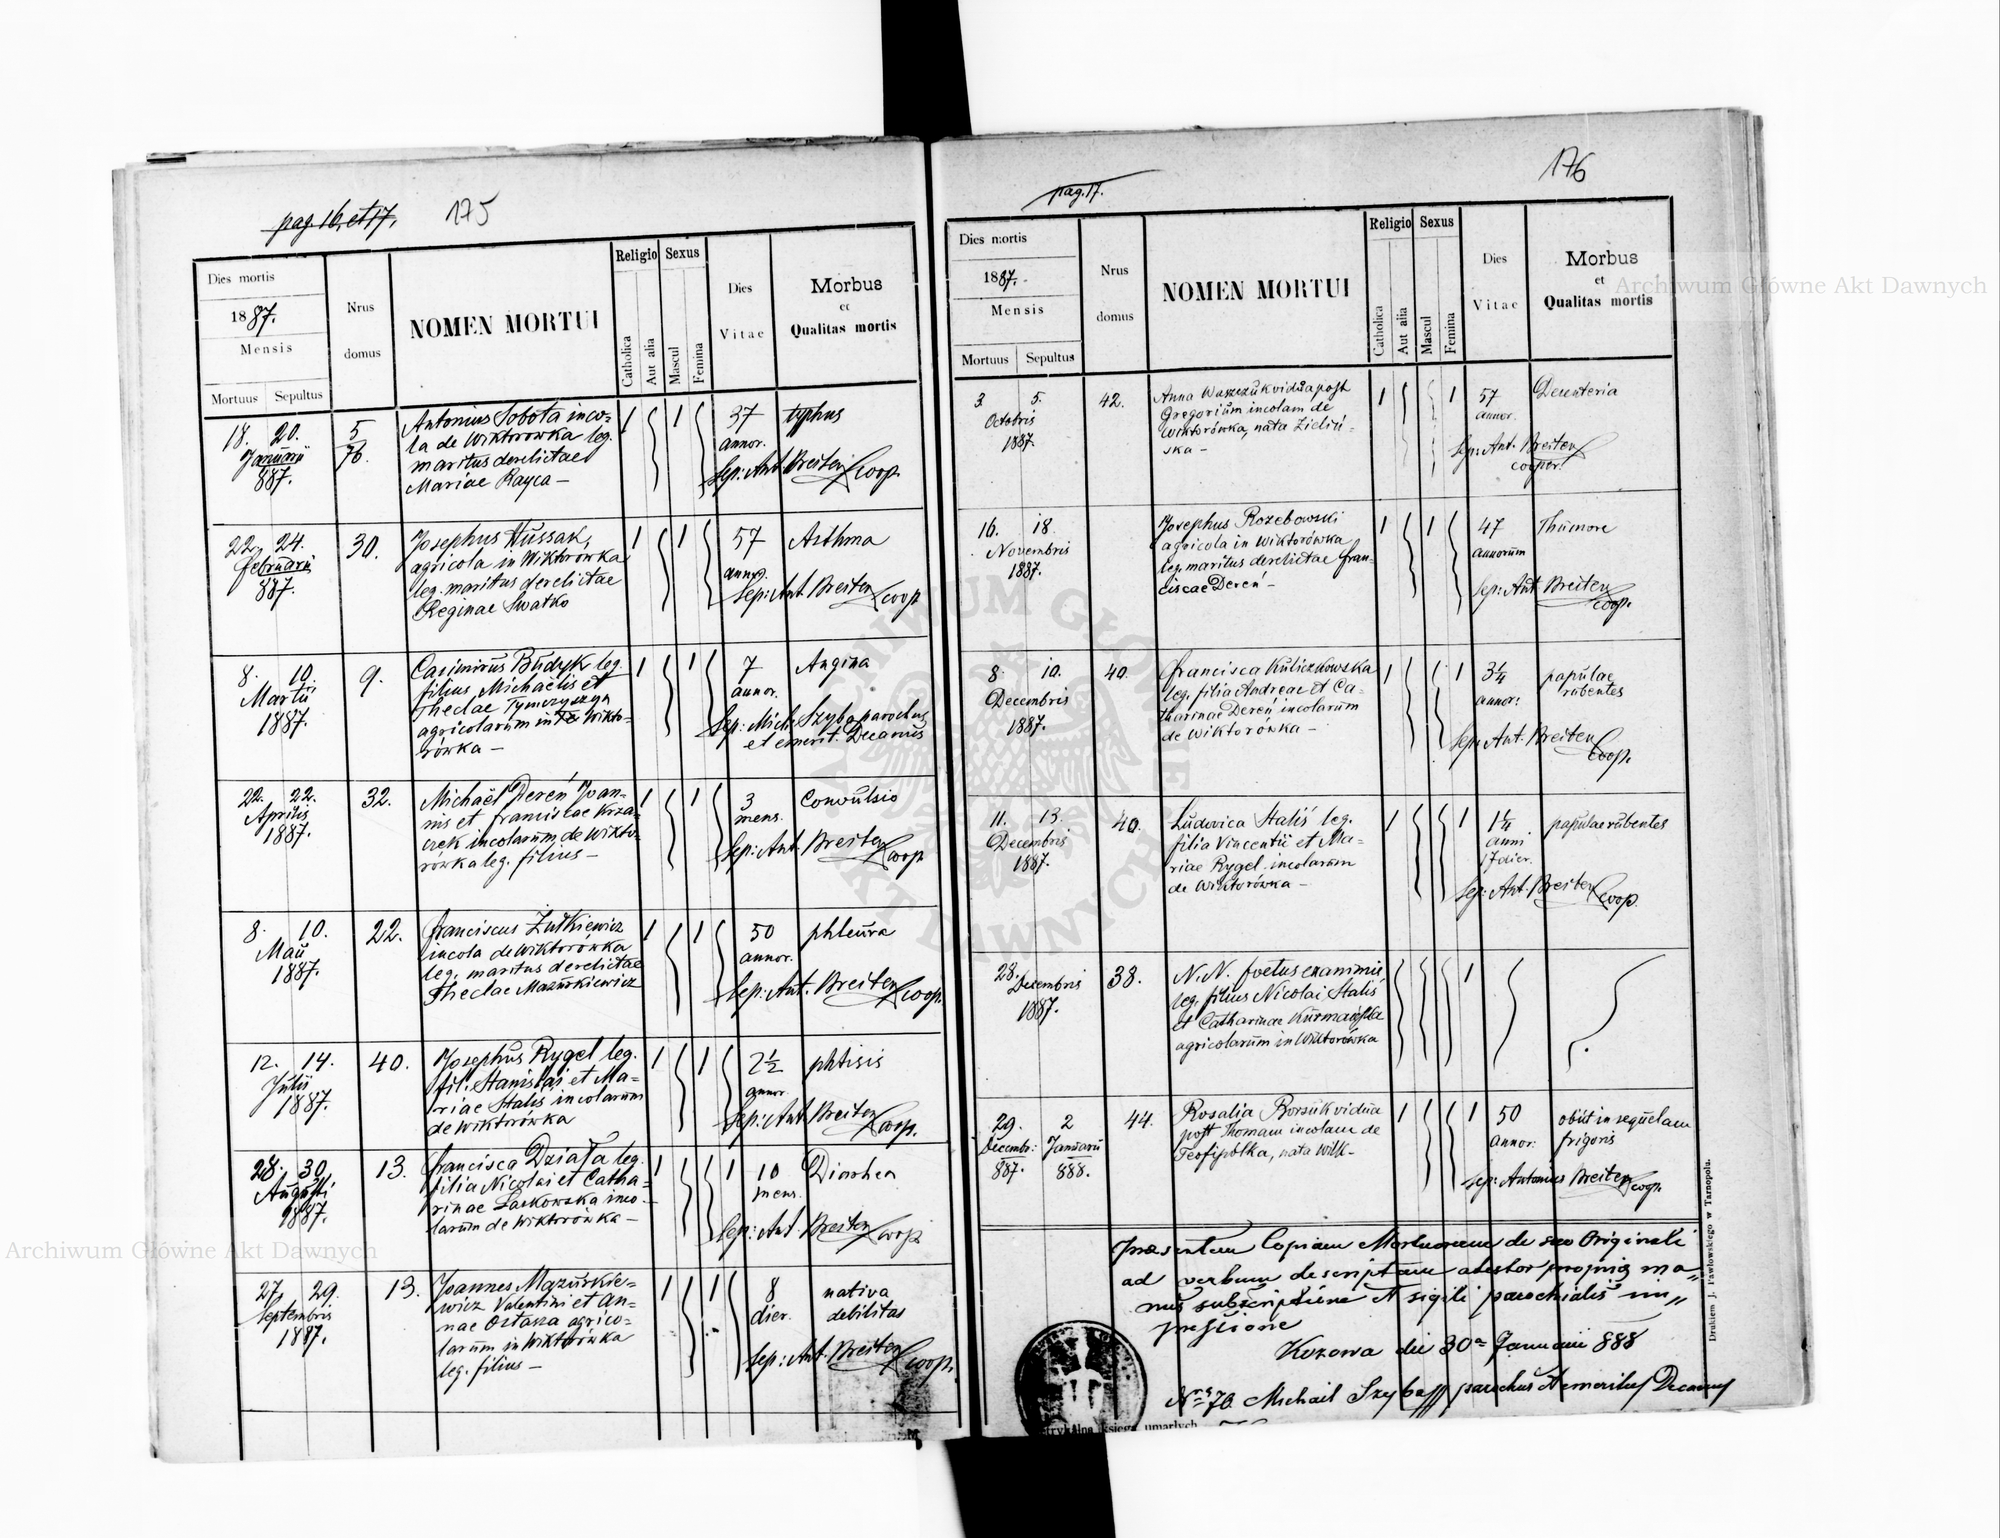 pag. 16. et 17.
175
Dies mortis
1887.
Mensis
Mortuus Sepultus
Nrus
domus
NOMEN MORTUI
Religio
Catholica
Aut alia
Sexus
Mascul
Femina
Dies
Vitae
Morbus
et
Qualitas mortis
18. 20.
Januarii
887.
5
76.
Antonius Sobota inco-
la de Wiktorówka leg.
maritus derelictae
Mariae Rayca –
1 1
37
annor.
typhus
Sep: Ant. Breiten Coop.
22. 24.
Februarii
887.
30.
Josephus Hussak,
agricola in Wiktorówka
leg. maritus derelictae
Reginae Swatko
1 1
57
annor.
Asthma
Sep: Ant. Breiten coop
8. 10.
Martii
1887.
9.
Casimirus Budyk leg.
filius Michaëlis et
Theclae Tymczyszyn
agricolarum in Wikto-
rówka –
1 1
7
annor.
Angina
Sep: Mich. Szyba parochus
et emerit. Decanus
22. 22.
Aprilis
1887.
32.
Michaël Dereń Joan-
nis et Franciscae Krza-
czek incolarum de Wikto-
rówka leg. filius –
1 1
3
mens.
Convulsio
Sep: Ant. Breiten Coop
8. 10.
Maii
1887.
22.
Franciscus Żutkiewicz
incola de Wiktorówka
leg. maritus derelictae
Theclae Mazurkiewicz
1 1
50
annor.
phleura
Sep: Ant. Breiten Coop.
12. 14.
Julii
1887.
40.
Josephus Rygel leg.
fil. Stanislai et Ma-
riae Stalis incolarum
de Wiktorówka
1 1
2½
annor
phtisis
Sep: Ant. Breiten Coop.
28. 30.
Augusti
1887.
13.
Francisca Działa leg.
filia Nicolai et Catha-
rinae Laskowska inco-
larum de Wiktorówka –
1 1
10
mens.
Diarhea
Sep: Ant. Breiten Coop
27. 29.
Septembris
1887.
13.
Joannes Mazurkie-
wicz Valentini et An-
nae Ostasza agrico-
larum in Wiktorówka
leg. filius –
1 1
8
dier.
nativa
debilitas
Sep: Ant. Breiten Coop.
pag. 17.
176
Dies mortis
1887.
Mensis
Mortuus Sepultus
Nrus
domus
NOMEN MORTUI
Religio
Catholica
Aut alia
Sexus
Mascul
Femina
Dies
Vitae
Morbus
et
Qualitas mortis
3 5.
Octobris
1887.
42.
Anna Waszczuk vidua post
Gregorium incolam de
Wiktorówka, nata Zieliń-
ska –
1 1
57
annor.
Decenteria
Sep: Ant. Breiten
cooper.
16. 18.
Novembris
1887.
Josephus Rozebowski
agricola in Wiktorówka
leg. maritus derelictae Fran-
ciscae Dereń –
1 1
47
annorum
Thumore
Sep: Ant Breiten
coop.
8. 10.
Decembris
1887.
40.
Francisca Kuliczkowska
leg. filia Andreae et Ca-
tharinae Dereń incolarum
de Wiktorówka –
1 1
3¼
annor:
papulae
rubentes
Sep: Ant. Breiten
Coop.
11. 13.
Decembris
1887.
40.
Ludovica Staliś leg.
filia Vincentii et Ma-
riae Rygel incolarum
de Wiktorówka –
1 1
1¼
anni
17 dier.
papulae rubentes
Sep: Ant. Breiten Coop.
28.
Decembris
1887.
38.
N.N. foetus exanimis
leg. filius Nicolai Staliś
et Catharinae Kurmańska
agricolarum in Wiktorówka
1
29. 2
Decembr: Januarii
887. 888.
44.
Rosalia Borsuk vidua
post Thomam incolam de
Teofipolka, nata Wilk –
1 1
50
annor:
obiit in sequelam
frigoris
Sep: Antonius Breiten coop.
Præsentem Copiam Mortuorum de suo Originali
ad verbum descriptam attestor propria ma„
nus subscriptione et sigili parochialis im„
pressione
Kozowa die 30ª Januarii 888
Nrs 76 Michail Szyba parochus et emeritus Decanus
Drukiem J. Pawłowskiego w Tarnopolu.
księga umarłych
Archiwum Główne Akt Dawnych
Archiwum Główne Akt Dawnych
ARCHIWUM GŁÓWNE AKT DAWNYCH